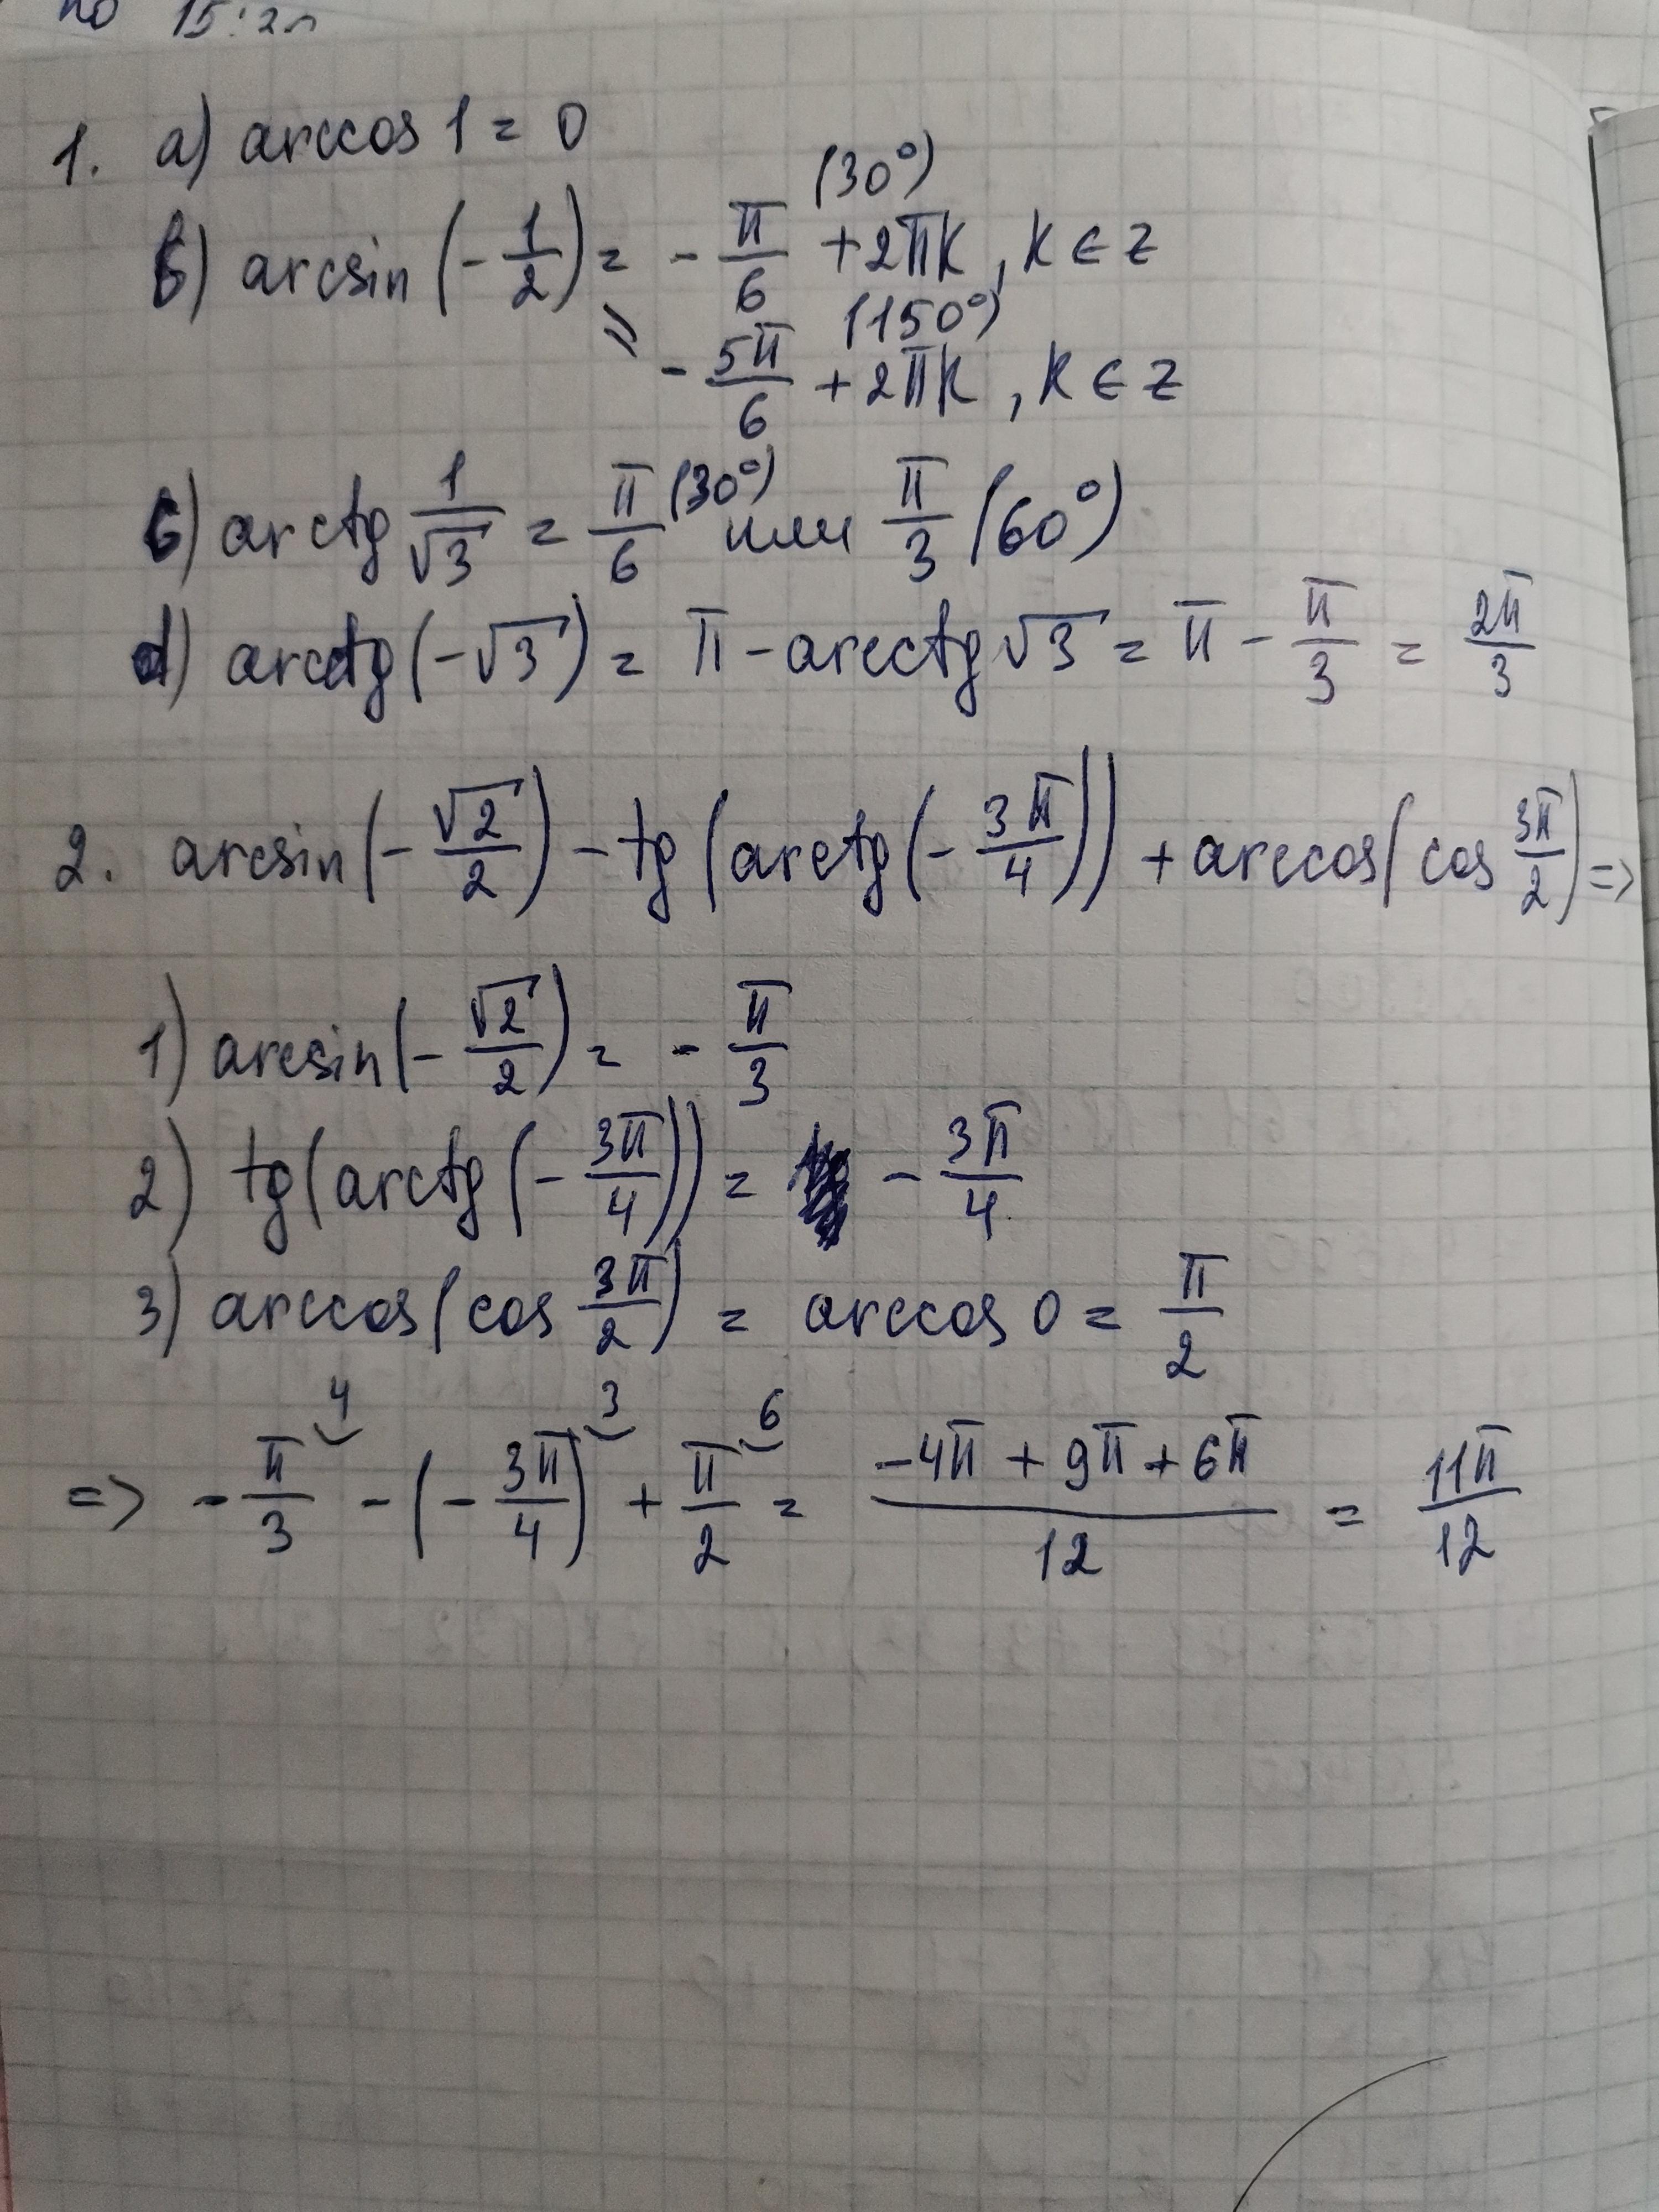 1. a) arccos 1 = 0
b) arcsin (-1/2) = -π/6 (30°) + 2πk, k ∈ z
= -5π/6 (150°) + 2πk, k ∈ z
c) arctg 1/√3 = π/6 (30°) или π/3 (60°)
d) arcctg (-√3) = π - arcctg √3 = π - π/3 = 2π/3
2. arcsin (-√2/2) - tg (arctg (-3π/4)) + arccos (cos 3π/2) =>
1) arcsin (-√2/2) = -π/3
2) tg (arctg (-3π/4)) = -3π/4
3) arccos (cos 3π/2) = arccos 0 = π/2
=> -π/3 (4 - (-3π/4) (3 + π/2 (6 = (-4π + 9π + 6π)/12 = 11π/12